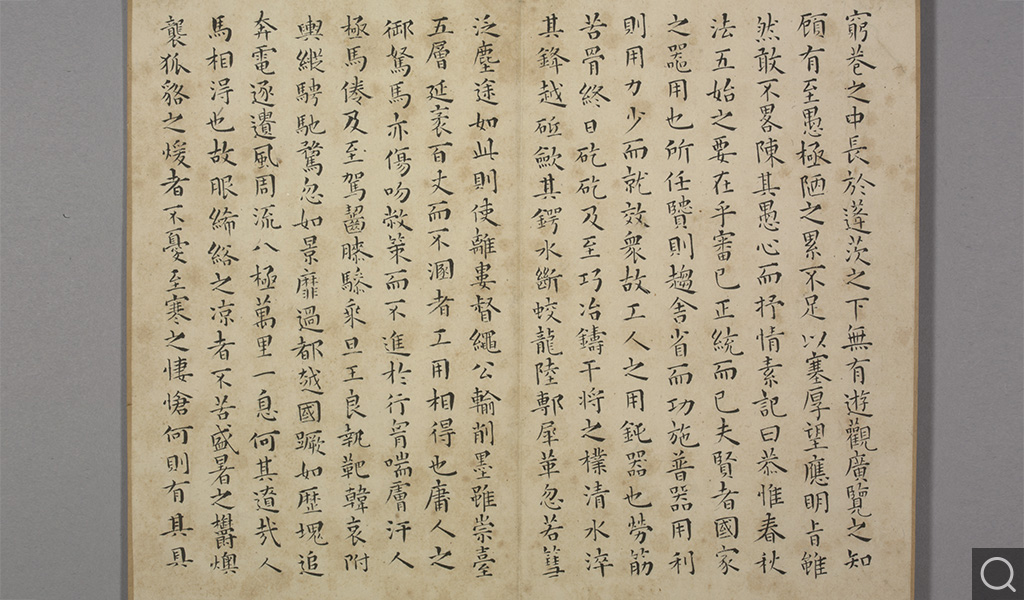 窮巷之中長於蓬茨之下無有遊觀廣覽之知
顧有至愚極陋之累不足以塞厚望應明旨雖
然敢不畧陳其愚心而抒情素記曰恭惟春秋
法五始之要在乎審已正統而已夫賢者國家
之器用也所任賢則趨舍省而功施普器用利
則用力少而就效衆故工人之用鈍器也勞筋
苦骨終日矻矻及至巧冶鑄干將之樸清水淬
其鋒越砥歛其鍔水斷蛟龍陸剸犀革忽若篲
泛塵塗如此則使離婁督繩公輸削墨雖崇臺
五層延袤百丈而不溷者工用相得也庸人之
御駑馬亦傷吻敝策而不進於行胷喘膚汗人
極馬倦及至駕齧膝驂乘旦王良執靶韓哀附
輿縱騁馳騖忽如景靡過都越國蹶如歷塊追
奔電逐遺風周流八極萬里一息何其遼哉人
馬相得也故服絺綌之凉者不苦盛暑之鬱燠
襲狐貉之煖者不憂至寒之悽愴何則有其具